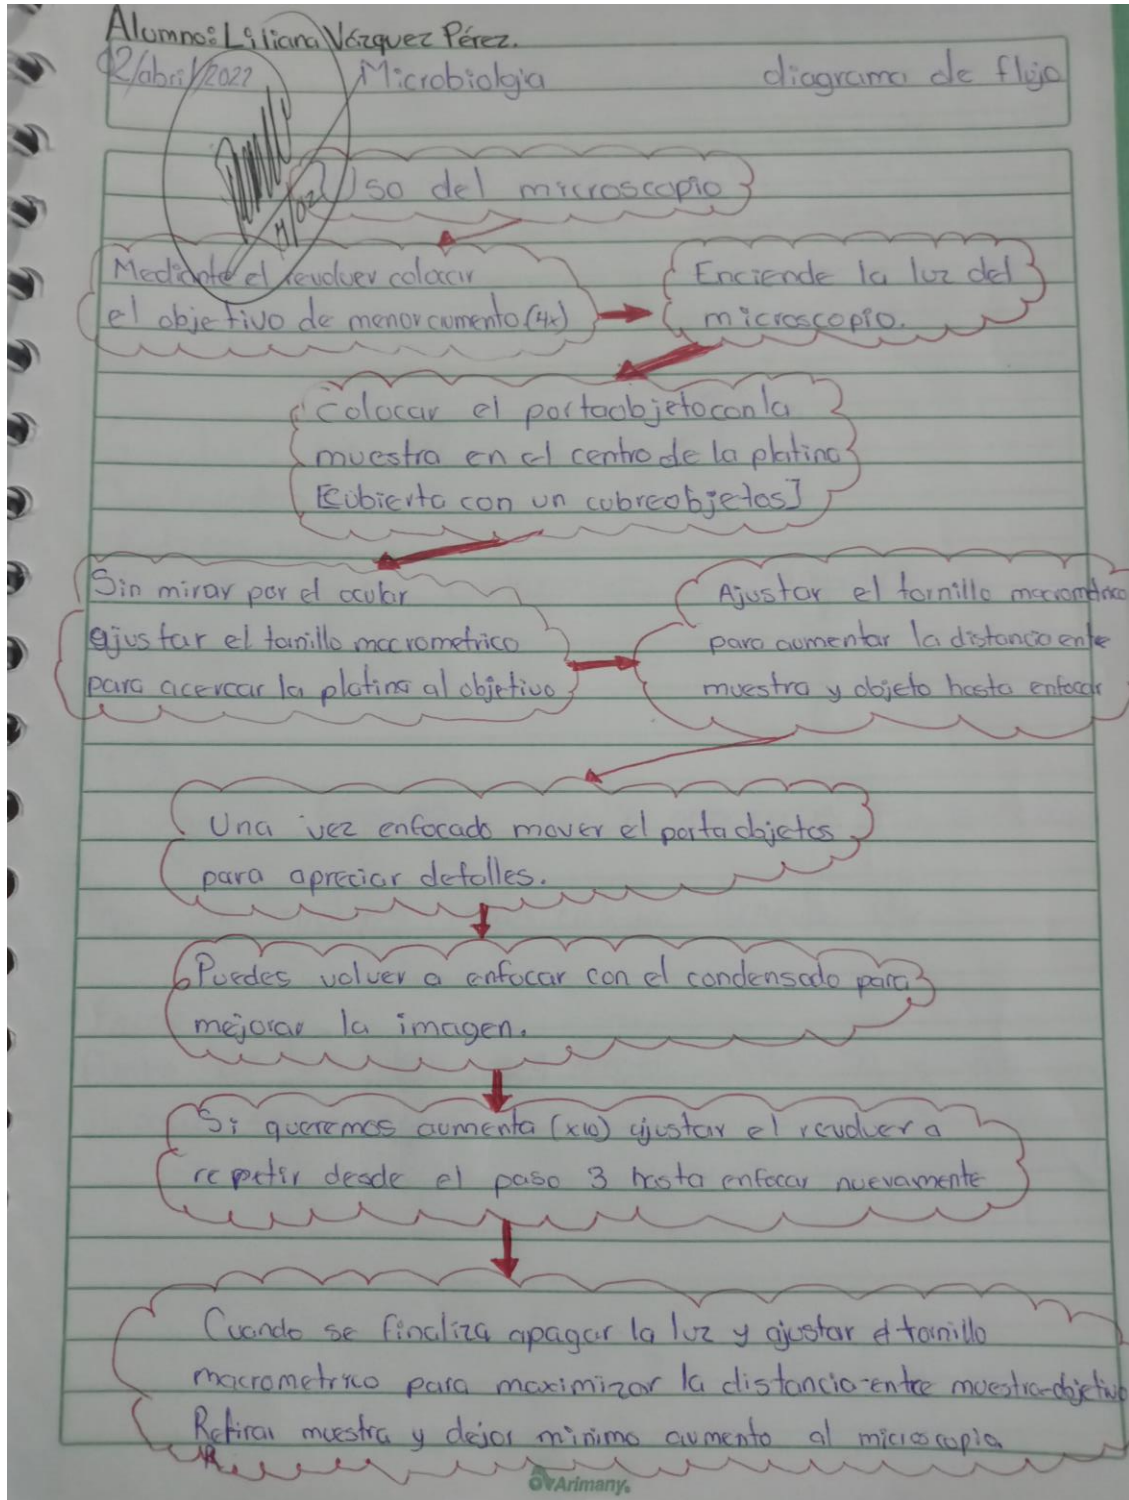 Alumno: Liliana Vázquez Pérez.
02/abril/2022 Microbiolgia diagrama de flujo
Uso del microscopio
Mediante el revolver colocar
el objetivo de menor aumento (4x)
Enciende la luz del
microscopio.
Colocar el portaobjeto con la
muestra en el centro de la platina
[Cubierta con un cubreobjetos]
Sin mirar por el ocular
ajustar el tornillo macrometrico
para acercar la platina al objetivo
Ajustar el tornillo macrometrico
para aumentar la distancia ente
muestra y objeto hasta enfocar
Una vez enfocado mover el portaobjetos
para apreciar detalles.
Puedes volver a enfocar con el condensado para
mejorar la imagen.
Si queremos aumenta (x10) ajustar el revolver a
repetir desde el paso 3 hasta enfocar nuevamente
Cuando se finaliza apagar la luz y ajustar el tornillo
macrometrico para maximizar la distancia entre muestra-objetivo
Retirar muestra y dejar minimo aumento al microscopia
Arimany.